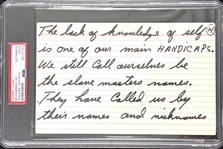 The lack of knowledge of self
is one of our main HANDICAPS.
We still Call ourselves be
the slave masters names.
They have Called us by
their names and nicknames